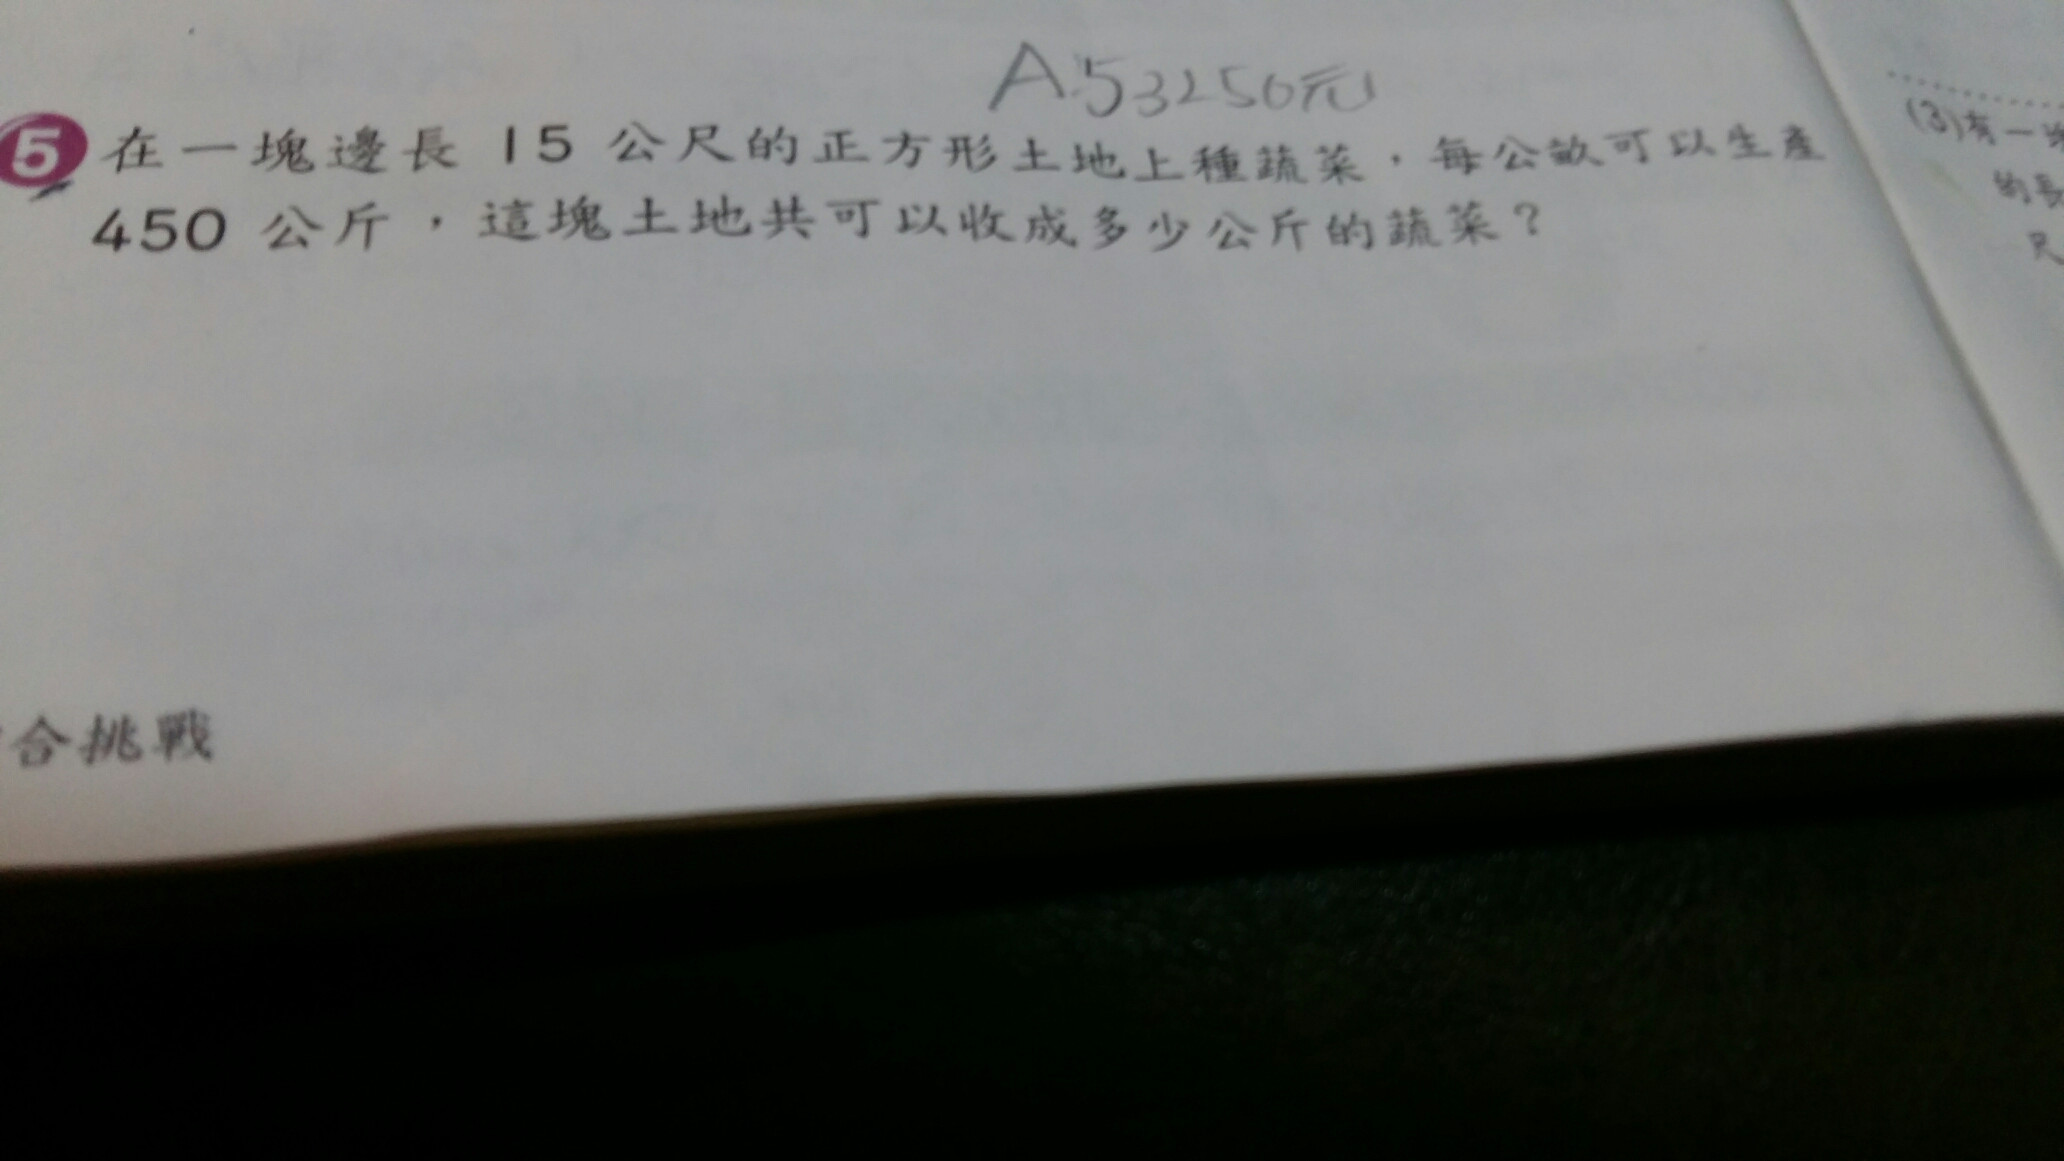 A:53250元
5 在一塊邊長 15 公尺的正方形土地上種蔬菜，每公畝可以生產
450 公斤，這塊土地共可以收成多少公斤的蔬菜？
合挑戰
(3)有一
的長
尺